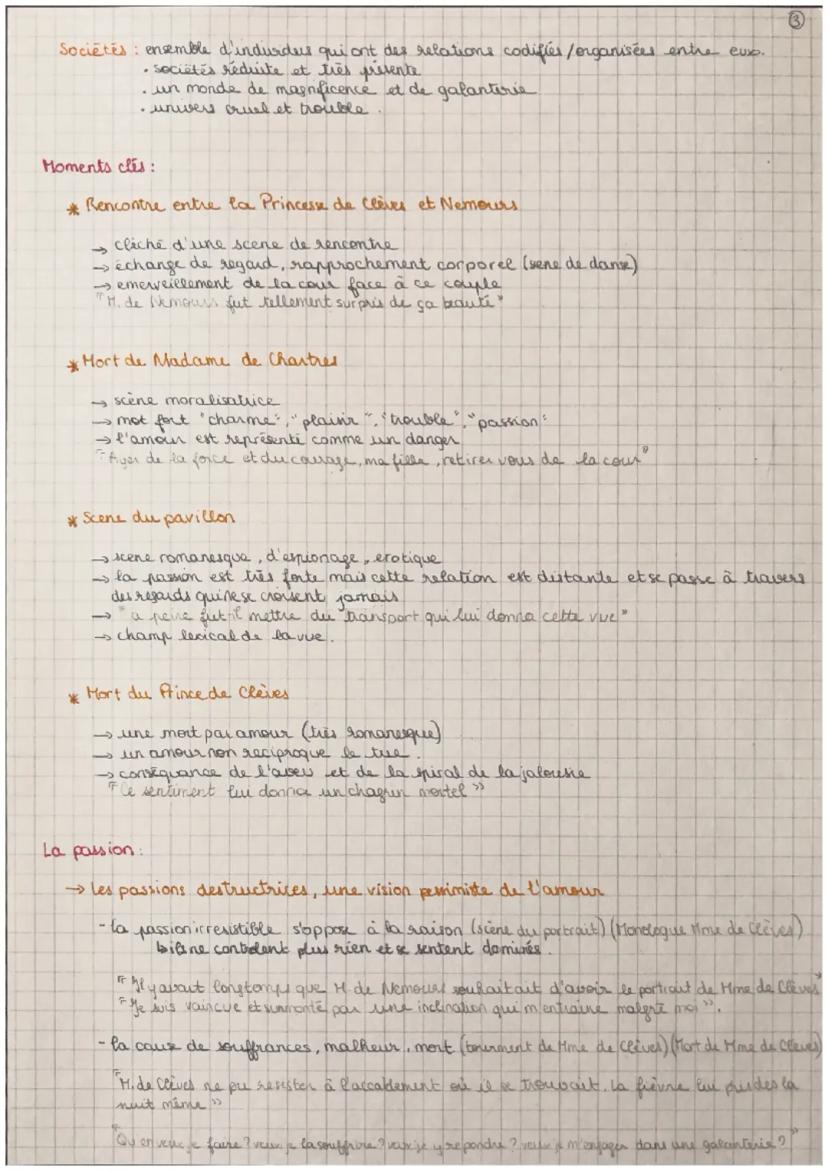 3
Sociétés : ensemble d'individus qui ont des relations codifiés/organisées entre eux.
• sociétés réduite et très présente
• un monde de magnificence et de galanterie
• univers cruel et trouble.
Moments clés :
* Rencontre entre la Princesse de Clèves et Nemours
→ cliché d'une scene de rencontre
→ échange de regard, rapprochement corporel (scene de danse)
→ emerveillement de la cour face à ce couple
"M. de Nemours fut tellement surpris de ça beauté"
* Mort de Madame de Chartres
→ scène moralisatrice
→ mot fort "charme", "plaisir", "trouble", "passion"
→ l'amour est représenté comme un danger
"Ayez de la force et du courage, ma fille, retirer vous de la cour"
* Scene du pavillon
→ scene romanesque, d'espionage, erotique
→ la passion est très forte mais cette relation est distante et se passe à travers
des regards qui ne se croisent jamais
→ "a peine fut-il mettre du transport qui lui donna cette vue"
→ champ lexical de la vue.
* Mort du Prince de Clèves
→ une mort par amour (très romanesque)
→ un amour non reciproque le tue.
→ conséquance de l'aveu et de la spiral de la jalousie
"Ce sentiment lui donna un chagrin mortel"
La passion :
→ Les passions destructrices, une vision pessimiste de l'amour
- la passion irresistible s'oppose à la raison (scène du portrait) (Monologue Mme de Clèves)
ils ne controlent plus rien et se sentent dominés.
"Il y avait longtemps que M de Nemours souhaitait d'avoir le portrait de Mme de Clèves"
"Je suis vaincue et surmonté par une inclination qui m'entraine malgré moi".
- la cause de souffrances, malheur, mort (tourment de Mme de Clèves) (Mort de Mme de Clèves)
"M. de Clèves ne pu resister à l'accablement où il se trouvait. La fièvre lui pris dès la
nuit même"
"Qu'en veux-je faire ? veux-je la souffrire ? veux-je y repondre ? veux-je m'engager dans une galanterie ?"